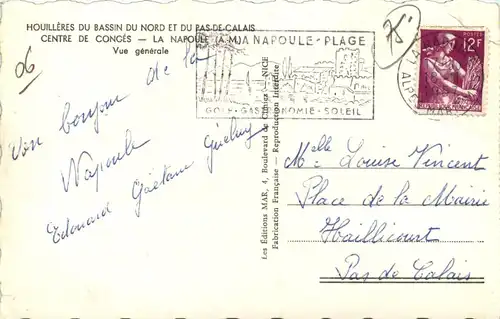 HOUILLÈRES DU BASSIN DU NORD ET DU PAS-DE-CALAIS
CENTRE DE CONGÉS — LA NAPOULE (A.-M.)
Vue générale
06
Bon bonjour de la
Napoule
Edouard Gaëtane
LA NAPOULE - PLAGE
GOLF - GASTRONOMIE - SOLEIL
ALPES
12F
Les Éditions MAR, 4, Boulevard de Cimiez - NICE
Fabrication Française - Reproduction Interdite
Melle Louise Vincent
Place de la Mairie
Haillicourt
Pas de Calais